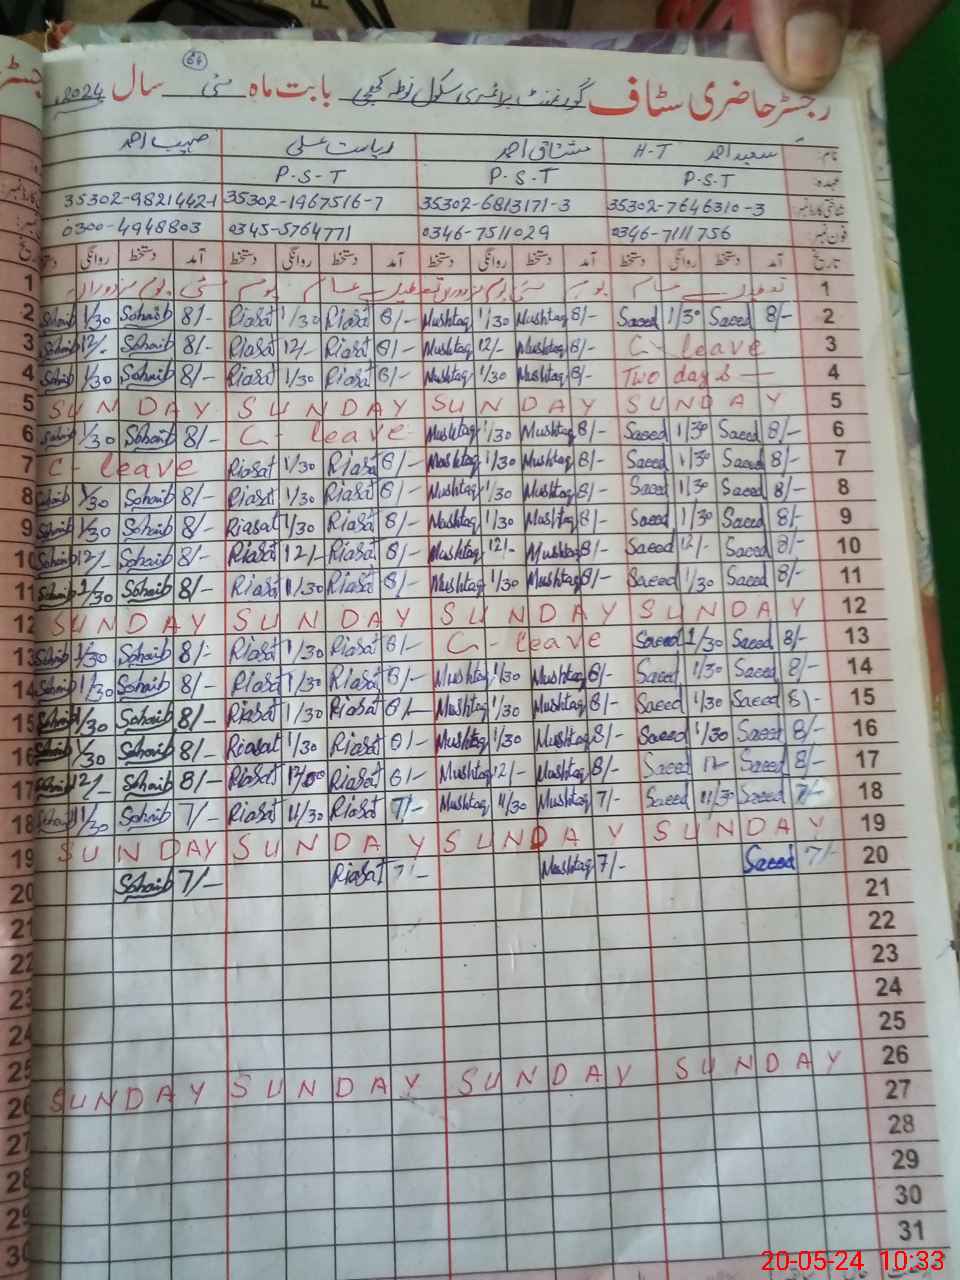 رجسٹر حاضری سٹاف گورنمنٹ پرائمری سکول بابت ماہ مئی سال 2024
64
نام: سعید احمد H-T مشتاق احمد ریاست علی صہیب احمد
عہدہ: P-S-T P-S-T P-S-T
شناختی کارڈ نمبر: 35302-7646310-3 35302-6813171-3 35302-1967516-7 35302-9821442-1
فون نمبر: 0346-7111756 0346-7511029 0345-5764771 0300-4948803
تاریخ آمد دستخط روانگی دستخط آمد دستخط روانگی دستخط آمد دستخط روانگی دستخط آمد دستخط روانگی
1 1
2 Sohaib 1/30 Sohaib 8/- Riasat 1/30 Riasat 8/- Mushtaq 1/30 Mushtaq 8/- Saeed 1/30 Saeed 8/- 2
3 Sohaib 12/- Sohaib 8/- Riasat 12/- Riasat 8/- Mushtaq 12/- Mushtaq 8/- C-leave 3
4 Sohaib 1/30 Sohaib 8/- Riasat 1/30 Riasat 8/- Mushtaq 1/30 Mushtaq 8/- Two days 4
5 SUNDAY SUNDAY SUNDAY SUNDAY 5
6 Sohaib 1/30 Sohaib 8/- C-leave Mushtaq 1/30 Mushtaq 8/- Saeed 1/30 Saeed 8/- 6
7 C-leave Riasat 1/30 Riasat 8/- Mushtaq 1/30 Mushtaq 8/- Saeed 1/30 Saeed 8/- 7
8 Sohaib 1/30 Sohaib 8/- Riasat 1/30 Riasat 8/- Mushtaq 1/30 Mushtaq 8/- Saeed 1/30 Saeed 8/- 8
9 Sohaib 1/30 Sohaib 8/- Riasat 1/30 Riasat 8/- Mushtaq 1/30 Mushtaq 8/- Saeed 1/30 Saeed 8/- 9
10 Sohaib 12/- Sohaib 8/- Riasat 12/- Riasat 8/- Mushtaq 12/- Mushtaq 8/- Saeed 12/- Saeed 8/- 10
11 Sohaib 1/30 Sohaib 8/- Riasat 1/30 Riasat 8/- Mushtaq 1/30 Mushtaq 8/- Saeed 1/30 Saeed 8/- 11
12 SUNDAY SUNDAY SUNDAY SUNDAY 12
13 Sohaib 1/30 Sohaib 8/- Riasat 1/30 Riasat 8/- C-leave Saeed 1/30 Saeed 8/- 13
14 Sohaib 1/30 Sohaib 8/- Riasat 1/30 Riasat 8/- Mushtaq 1/30 Mushtaq 8/- Saeed 1/30 Saeed 8/- 14
15 Sohaib 1/30 Sohaib 8/- Riasat 1/30 Riasat 8/- Mushtaq 1/30 Mushtaq 8/- Saeed 1/30 Saeed 8/- 15
16 Sohaib 1/30 Sohaib 8/- Riasat 1/30 Riasat 8/- Mushtaq 1/30 Mushtaq 8/- Saeed 1/30 Saeed 8/- 16
17 Sohaib 12/- Sohaib 8/- Riasat 12/00 Riasat 8/- Mushtaq 12/- Mushtaq 8/- Saeed 12/- Saeed 8/- 17
18 Sohaib 11/30 Sohaib 7/- Riasat 11/30 Riasat 7/- Mushtaq 11/30 Mushtaq 7/- Saeed 11/30 Saeed 7/- 18
19 SUNDAY SUNDAY SUNDAY SUNDAY 19
20 Sohaib 7/- Riasat 7/- Mushtaq 7/- Saeed 7/- 20
21 21
22 22
23 23
24 24
25 25
26 SUNDAY SUNDAY SUNDAY SUNDAY 26
27 27
28 28
29 29
30 30
31
20-05-24 10:33